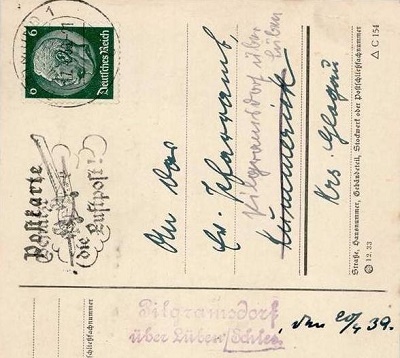 6 Deutsches Reich 6
Postkarte
die Luftpost!
An das
Ev. Pfarramt,
Pilgramsdorf über
Lüben
Kummernick
Krs. Glogau
Straße, Hausnummer, Gebäudeteil, Stockwerk oder Postschließfachnummer
△ C 154
12. 33
schließfachnummer
Pilgramsdorf
über Lüben/Schles.
, den 20/4 39.